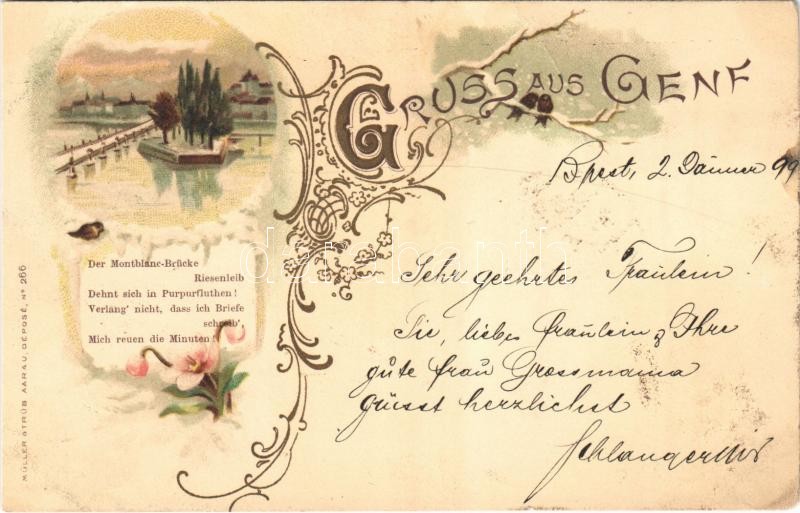 GRUSS AUS GENF
Bpest, 2. Jänner 99
Der Montblanc-Brücke
Riesenleib
Dehnt sich in Purpurfluthen!
Verlang' nicht, dass ich Briefe
schreib',
Mich reuen die Minuten!
Sehr geehrtes Fräulein!
Sie, liebes Fräulein & Ihre
gute Frau Grossmama
grüsst herzlichst
MÜLLER & TRÜB AARAU, DÉPOSÉ, No 266